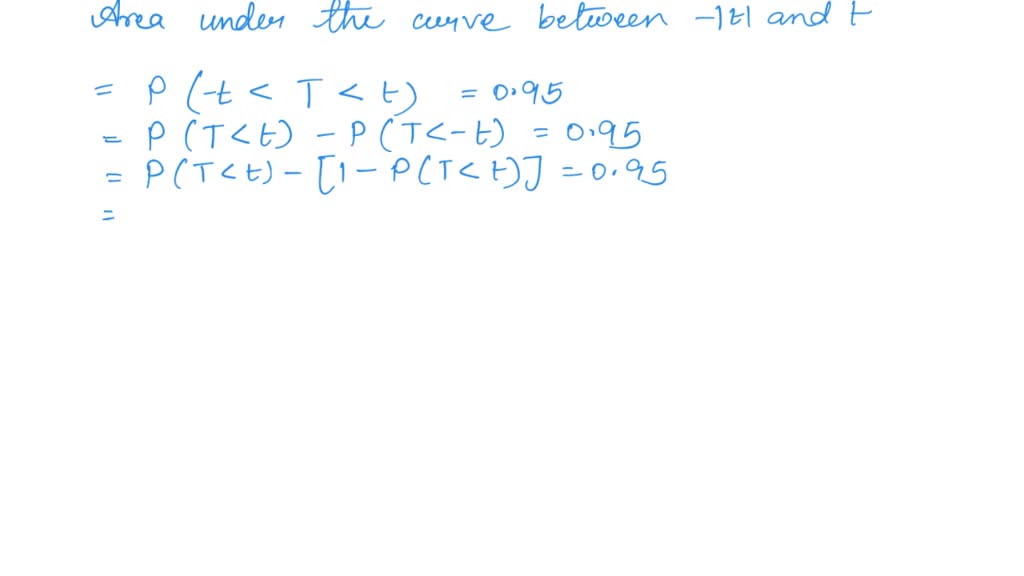 Area under the curve between -|t| and t
= P (-t < T < t) = 0.95
= P (T<t) - P (T<-t) = 0.95
= P(T<t) - [1 - P(T<t)] = 0.95
=